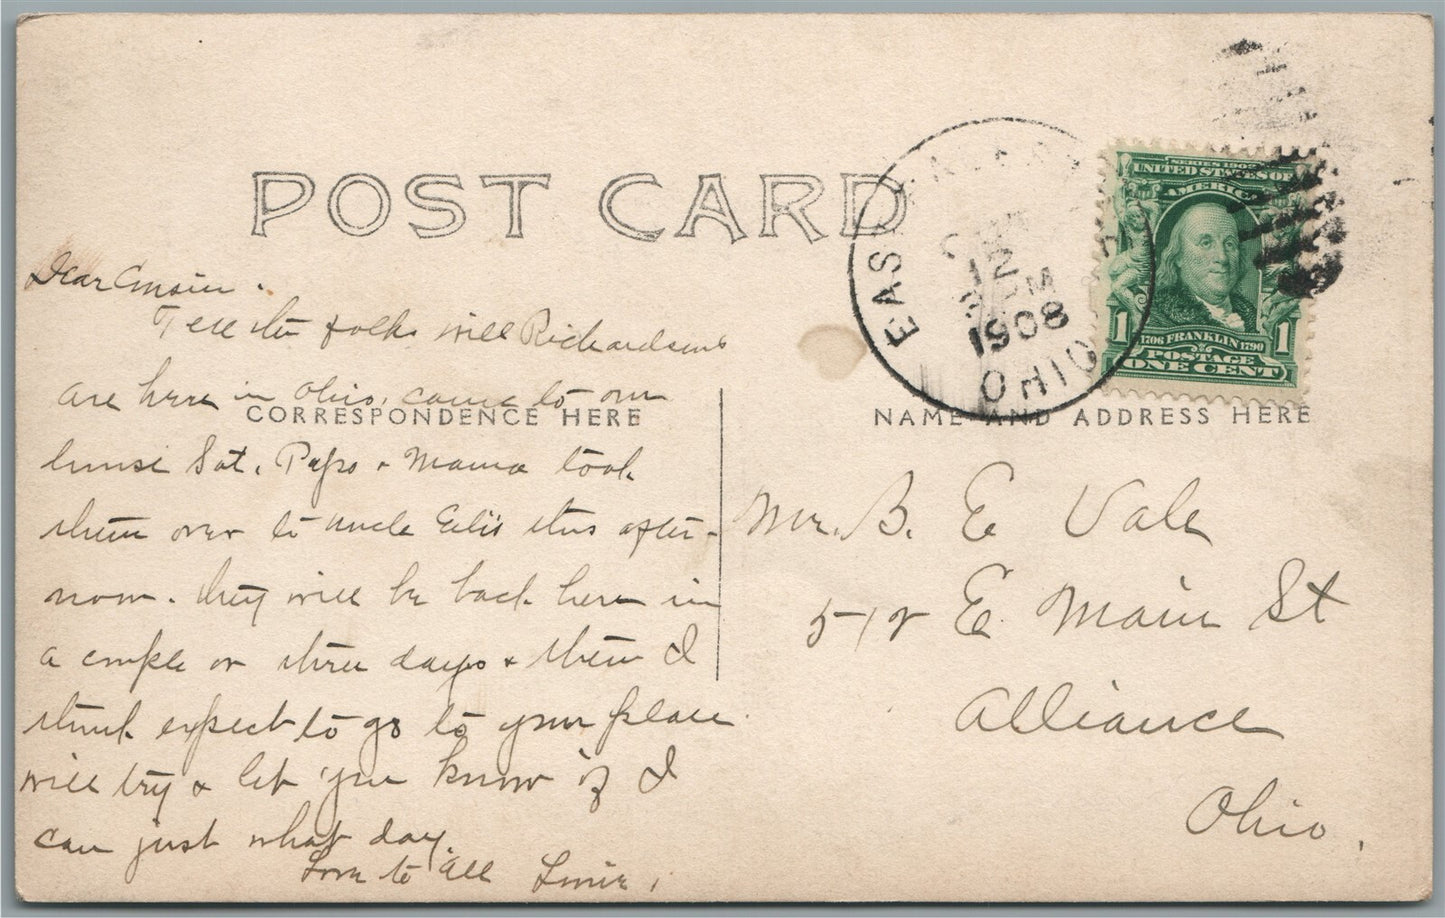 POST CARD
EAS
12
M
1908
OHIO
SERIES 1902
UNITED STATES OF
AMERICA
1 1
1706 FRANKLIN 1790
POSTAGE
ONE CENT
Dear Cousin.
Tell the folks Will Richardsons
are here in Ohio, came to our
CORRESPONDENCE HERE
house Sat. Papa + Mama took
them over to uncle Eli's this after-
noon. They will be back here in
a couple or three days + then I
think expect to go to your place
will try + let you know if I
can just what day.
Love to all
NAME AND ADDRESS HERE
Mr. B. E Vale
512 E. Main St
Alliance
Ohio.